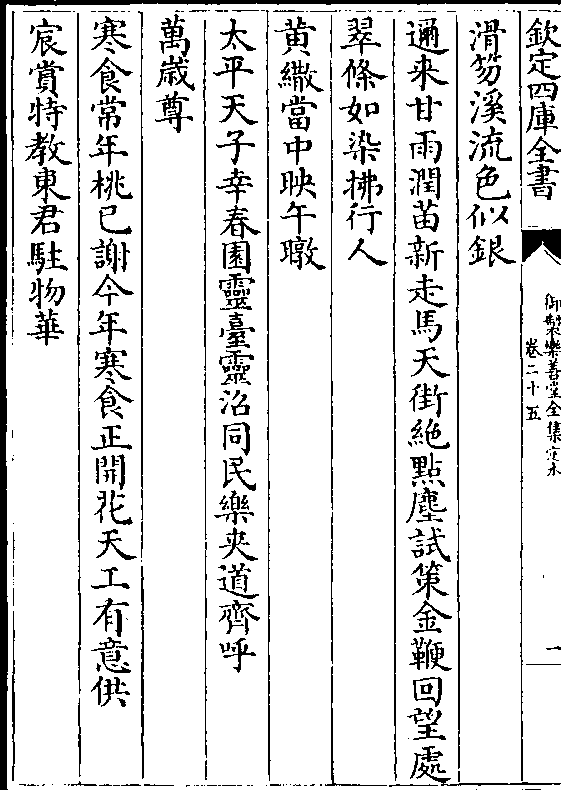 欽定四庫全書
御製樂善堂全集定本
卷二十五
一
滑笏溪流色似銀
邇来甘雨潤苗新走馬天街絶點塵試策金鞭回望處
翠條如染拂行人
黄繖當中映午暾
太平天子幸春園靈臺靈沼同民樂夾道齊呼
萬歲尊
寒食常年桃已謝今年寒食正開花天工有意供
宸賞特教東君駐物華